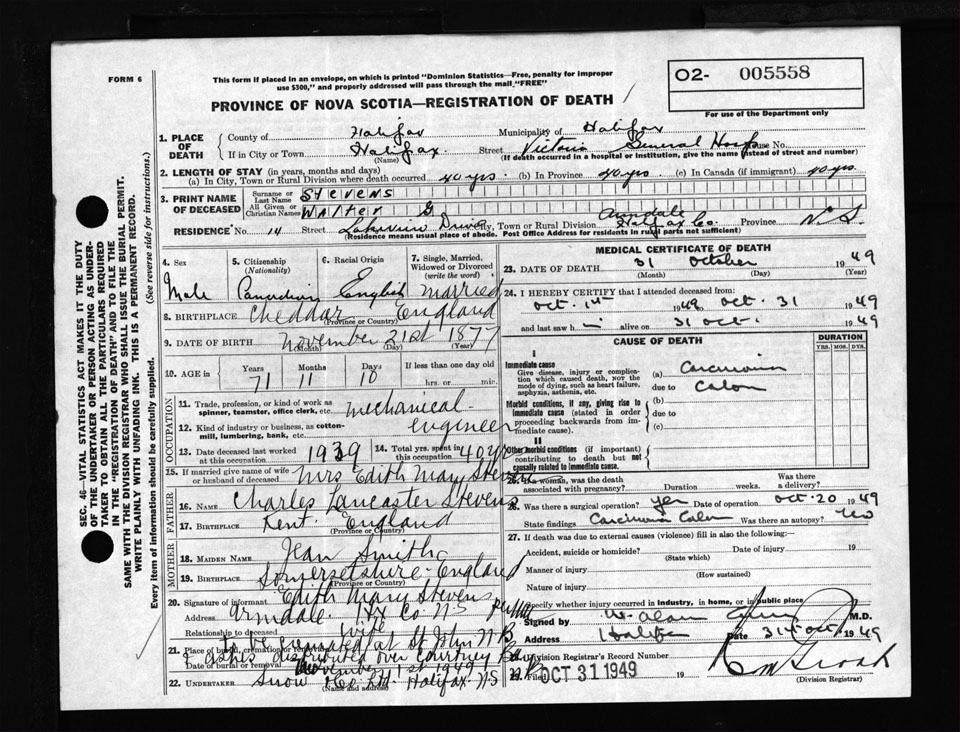 FORM 6
This form if placed in an envelope, on which is printed "Dominion Statistics—Free, penalty for improper
use $300," and properly addressed will pass through the mail "FREE"
O2- 005558
For use of the Department only
PROVINCE OF NOVA SCOTIA—REGISTRATION OF DEATH
1. PLACE OF DEATH
County of Halifax Municipality of Halifax
If in City or Town Halifax. Street Victoria General Hosp House No.
(Name) (If death occurred in a hospital or institution, give the name instead of street and number)
2. LENGTH OF STAY (in years, months and days)
(a) In City, Town or Rural Division where death occurred 40 yrs. (b) In Province 40 yrs. (c) In Canada (if immigrant) 40 yrs.
3. PRINT NAME OF DECEASED
Surname or Last Name Stevens
All Given or Christian Names Walter G
RESIDENCE No. 14 Street Lakeview Drive City, Town or Rural Division Armdale Halifax Co. Province N.S.
(Residence means usual place of abode. Post Office Address for residents in rural parts not sufficient)
4. Sex
Male
5. Citizenship (Nationality)
Canadian
6. Racial Origin
English
7. Single, Married, Widowed or Divorced (write the word)
Married
8. BIRTHPLACE Cheddar England
(Province or Country)
9. DATE OF BIRTH November 21st 1877
(Month) (Day) (Year)
10. AGE in Years Months Days If less than one day
71 11 10 hrs. or min.
OCCUPATION
11. Trade, profession, or kind of work as spinner, teamster, office clerk, etc. mechanical
12. Kind of industry or business, as cotton-mill, lumbering, bank, etc. engineer
13. Date deceased last worked at this occupation 1939
14. Total yrs. spent in this occupation 40 yr
15. If married give name of wife or husband of deceased Mrs Edith Mary Stevens
FATHER
16. NAME Charles Lancaster Stevens
17. BIRTHPLACE Kent. England
(Province or Country)
MOTHER
18. MAIDEN NAME Jean Smith
19. BIRTHPLACE Somersetshire - England
(Province or Country)
20. Signature of informant Edith Mary Stevens
Address Armdale Hx Co. N S
Relationship to deceased wife
21. Place of burial, cremation or removal To be cremated at St John N B
& ashes distributed over Courtney Bay
Date of burial or removal November 1st 1949
22. UNDERTAKER Snow & Co Ltd. Halifax N S
(Name and address)
MEDICAL CERTIFICATE OF DEATH
23. DATE OF DEATH 31 October 1949
(Month) (Day) (Year)
24. I HEREBY CERTIFY that I attended deceased from
Oct. 14 1949 Oct. 31 1949
and last saw h im alive on 31 Oct. 1949
CAUSE OF DEATH
DURATION
YRS. MOS. DYS.
I
Immediate cause
Give disease, injury or complication which caused death, NOT the mode of dying, such as heart failure, asphyxia, asthenia, etc.
(a) Carcinoma
due to Colon
Morbid conditions, if any, giving rise to immediate cause (stated in order proceeding backwards from immediate cause).
(b)
due to
(c)
II
Other morbid conditions (if important) contributing to death but not causally related to immediate cause.
25. If a woman, was the death associated with pregnancy? Duration weeks. Was there a delivery?
26. Was there a surgical operation? yes Date of operation Oct. 20 1949
State findings Carcinoma Colon Was there an autopsy? No
27. If death was due to external causes (violence) fill in also the following:—
Accident, suicide or homicide? Date of injury 19
(State which)
Manner of injury
(How sustained)
Nature of injury
Specify whether injury occurred in industry, in home, or in public place
Signed by W. Alan Curry M.D.
Address Halifax Date 31st Oct 1949
28. Division Registrar's Record Number
29. Filed OCT 31 1949 19
(Division Registrar)
SEC. 46—VITAL STATISTICS ACT MAKES IT THE DUTY
OF THE UNDERTAKER OR PERSON ACTING AS UNDER-
TAKER TO OBTAIN ALL THE PARTICULARS REQUIRED
IN THE "REGISTRATION OF DEATH" AND TO FILE THE
SAME WITH THE DIVISION REGISTRAR WHO SHALL ISSUE THE BURIAL PERMIT.
WRITE PLAINLY WITH UNFADING INK. THIS IS A PERMANENT RECORD.
Every item of information should be carefully supplied. (See reverse side for instructions.)